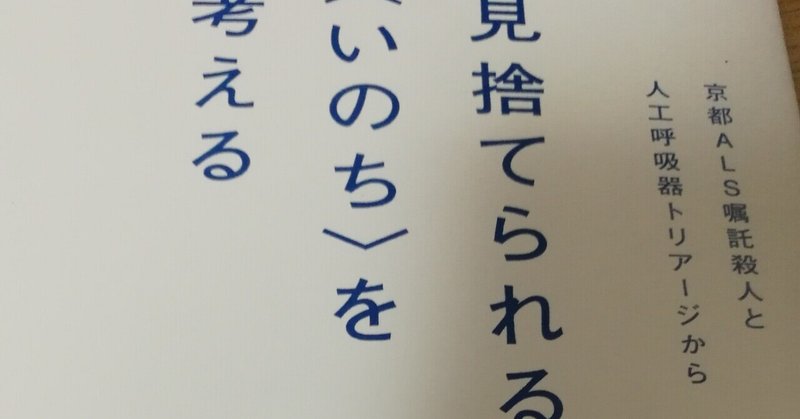 京都ALS嘱託殺人と
人工呼吸器トリアージから
見捨てられる
いのち〉を
考える